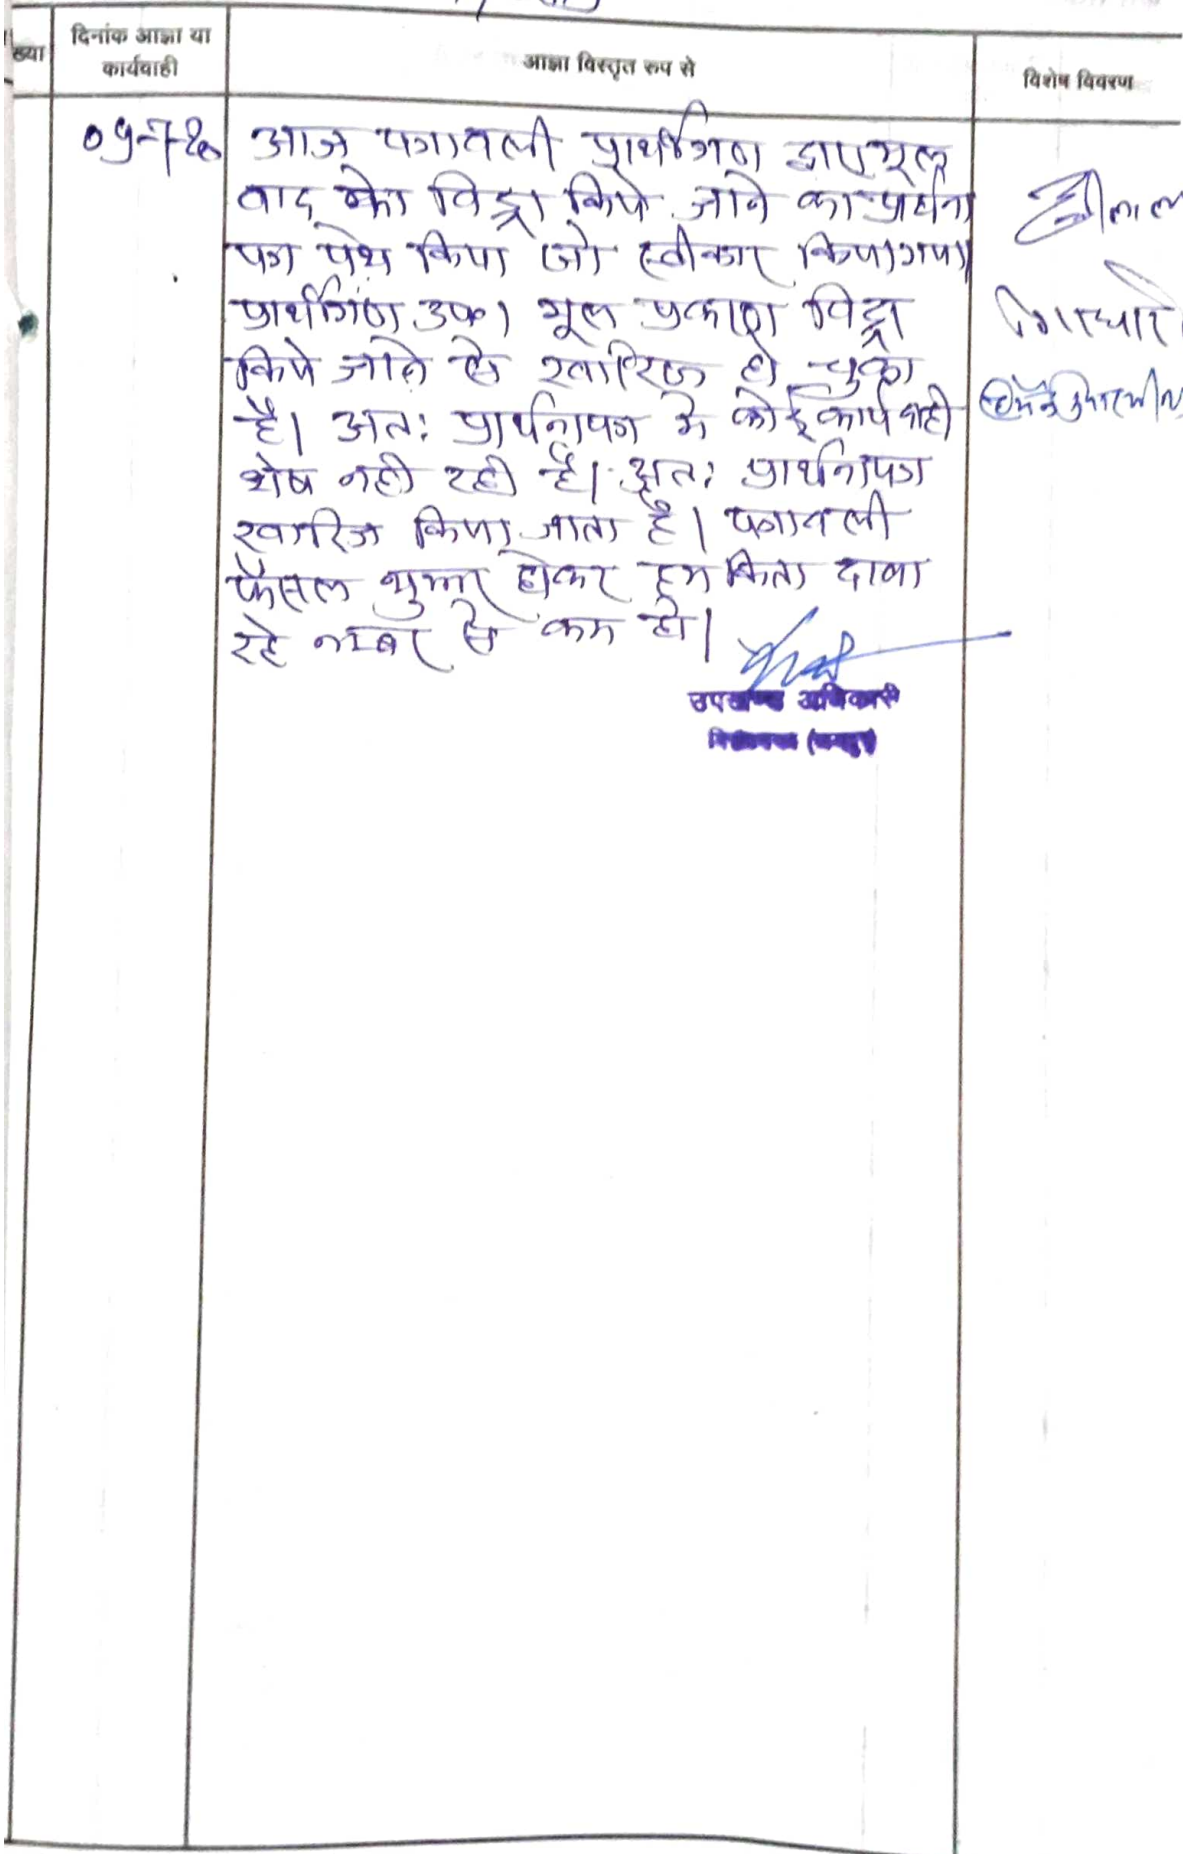 ख्या
दिनांक आज्ञा या
कार्यवाही
आज्ञा विस्तृत रुप से
विशेष विवरण
आज पत्रावली प्रार्थीगण द्वारा मूल
वाद को विड्रा किये जाने का प्रार्थना
पत्र पेश किया जो स्वीकार किया गया
प्रार्थीगण उक्त। मूल प्रकरण विड्रा
किये जाने से खारिज हो चुका
है। अतः प्रार्थनापत्र मे कोई कार्यवाही
शेष नही रही है। अतः प्रार्थनापत्र
खारिज किया जाता है। पत्रावली
फैसल शुमार होकर हम किता दावा
रहे नम्बर से कम हो।
उपखण्ड अधिकारी